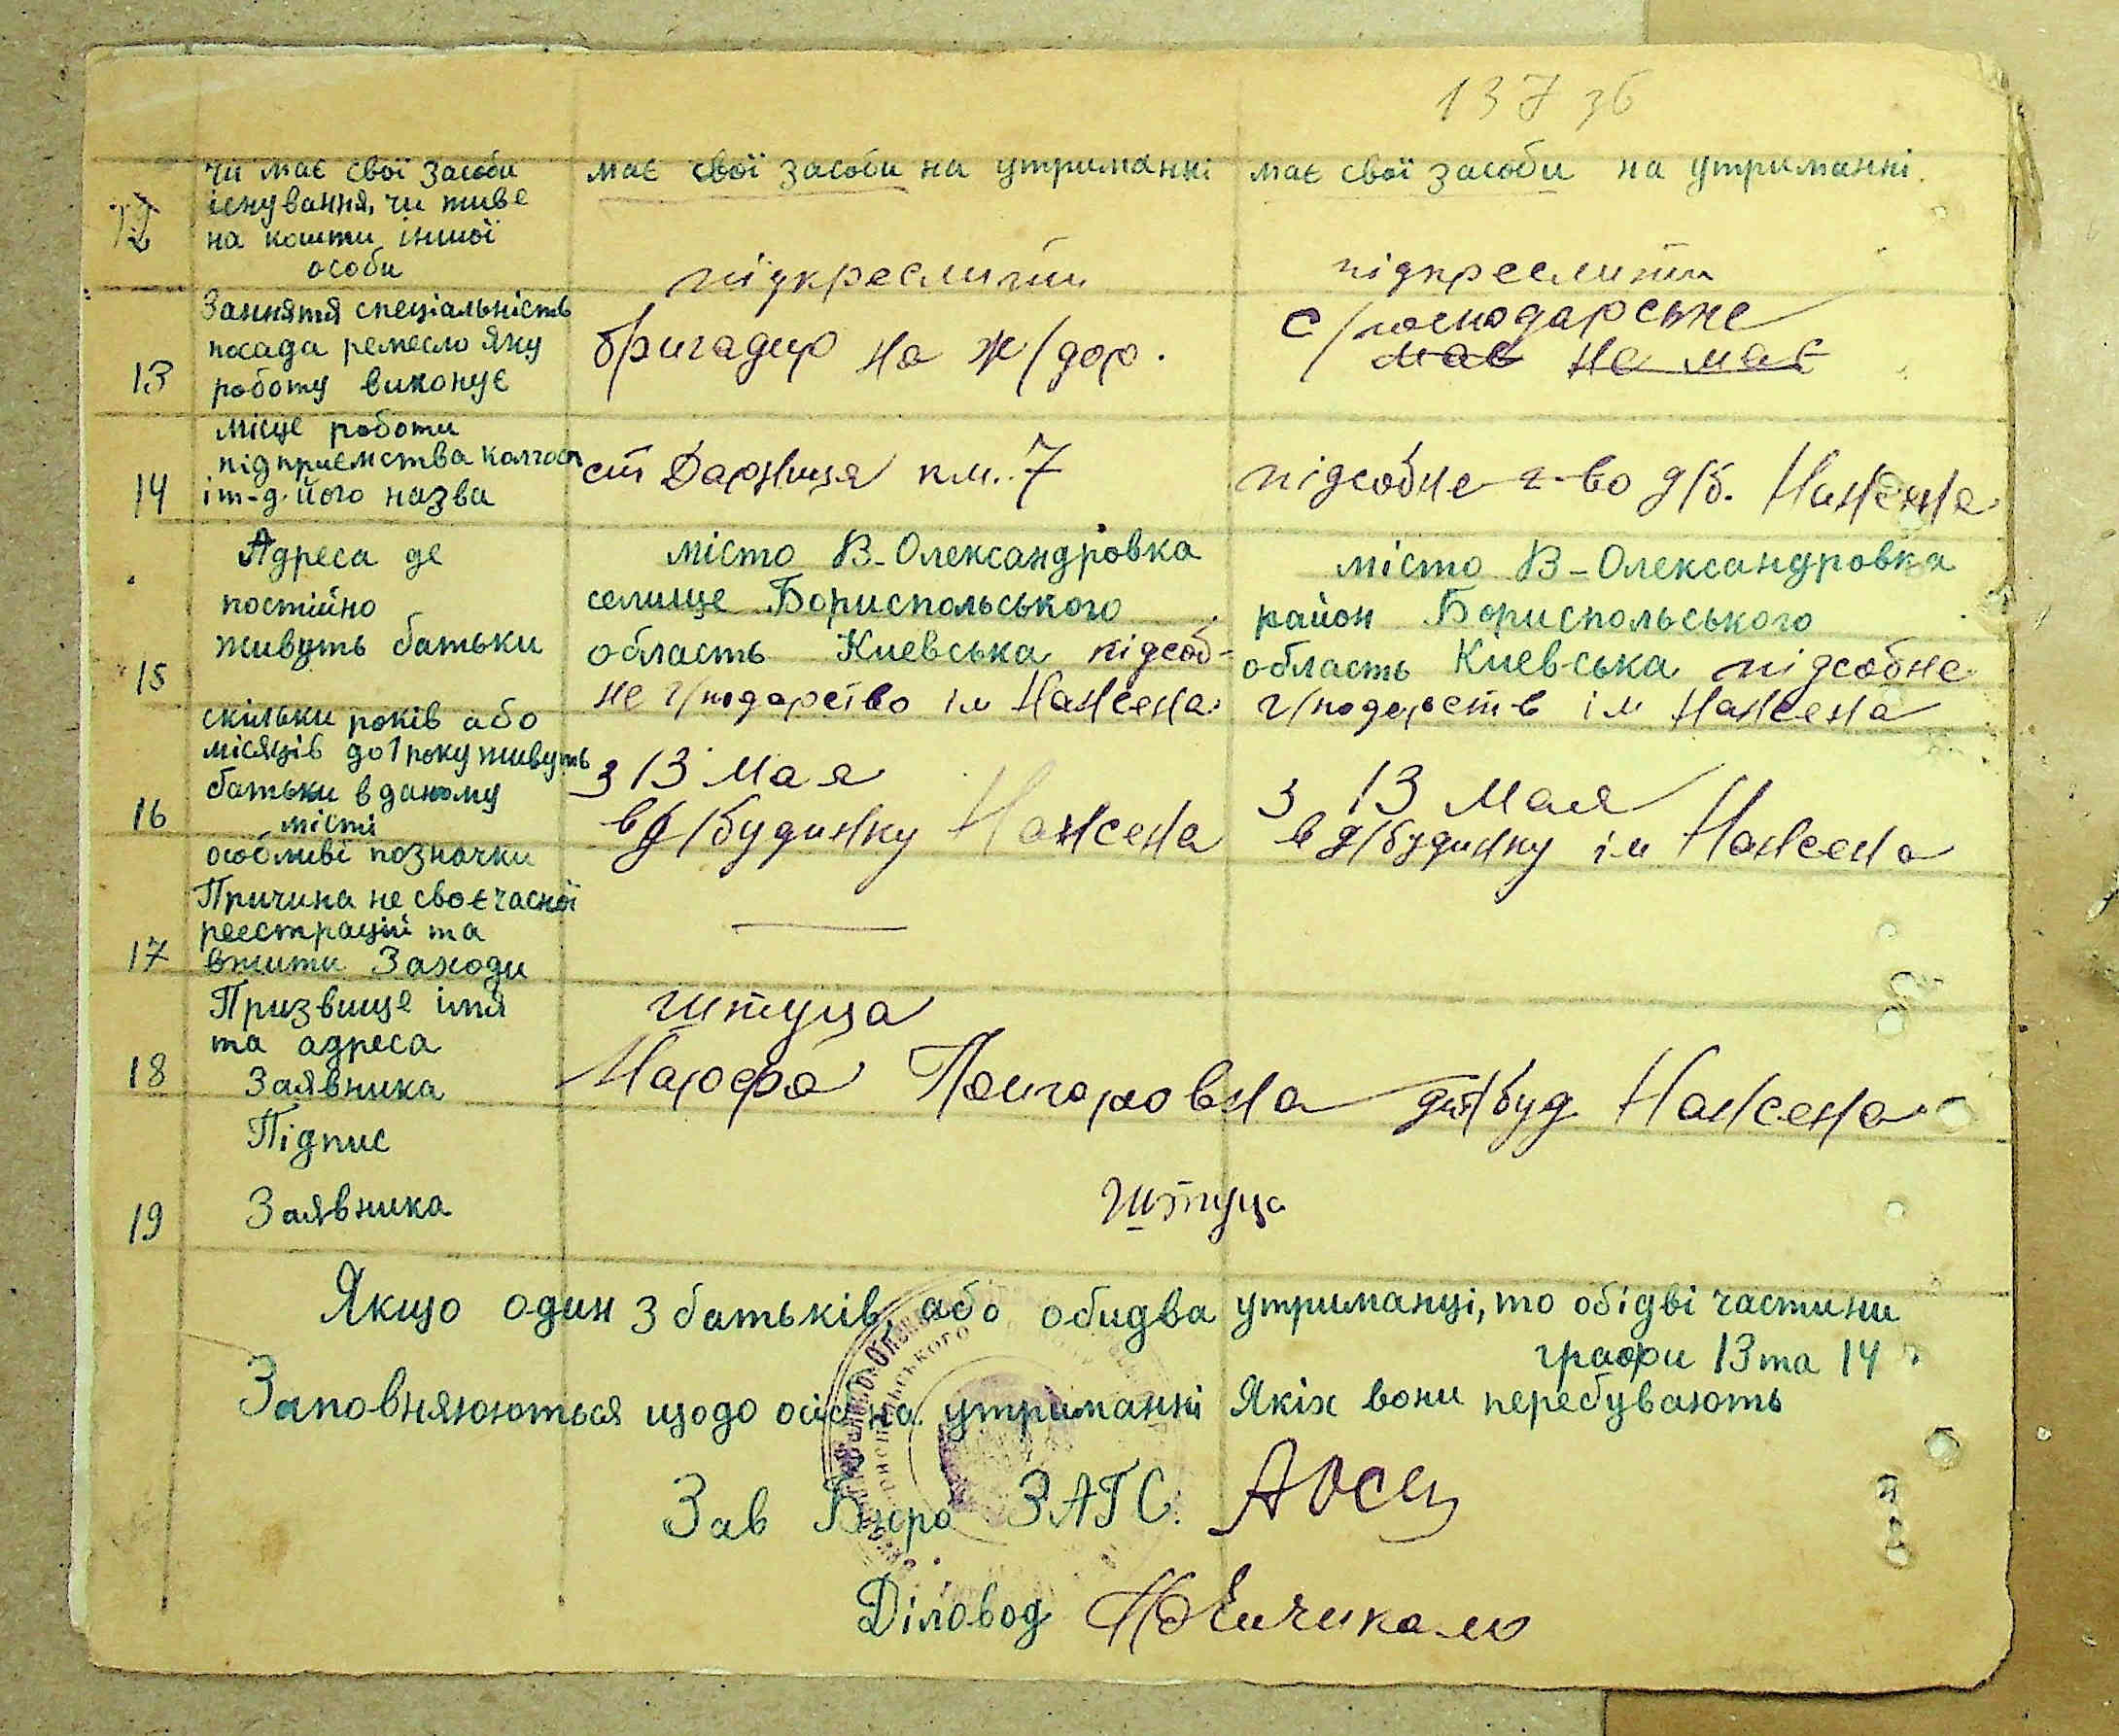 137 зв
12
чи має свої засоби
існування, чи живе
на кошти іншої
особи
має свої засоби на утриманні
підкреслити
має свої засоби на утриманні
підкреслити
13
Заняття спеціальність
посада ремесло яку
роботу виконує
бригадир на ж/дор.
с/господарське
має не має
14
місце роботи
підприємства колгосп
і т-д. його назва
ст Дарниця км. 7
підсобне г-во д/б. Нансена
15
Адреса де
постійно
живуть батьки
місто В-Олександровка
селище Бориспольського
область Киевська підсоб-
не г/подарство ім Нансена
місто В-Олександровка
район Бориспольського
область Киевська підсобне
г/подарств ім Нансена
16
скільки років або
місяців до 1 року живуть
батьки в даному
місті
з 13 мая
в д/будинку Нансена
з 13 мая
в д/будинку ім Нансена
17
особливі позначки
Причина не своєчасної
реєстрації та
вжити Заходи
18
Призвище імя
та адреса
Заявника
штуца
Марфа Григоровна дит/буд Нансена
19
Підпис
Заявника
Штуца
Якщо один з батьків, або обидва утриманці, то обідві частини
графи 13 та 14
Заповняюються щодо осіб на утриманні Якіх вони перебувають
Зав Бюро ЗАГС.
Діловод